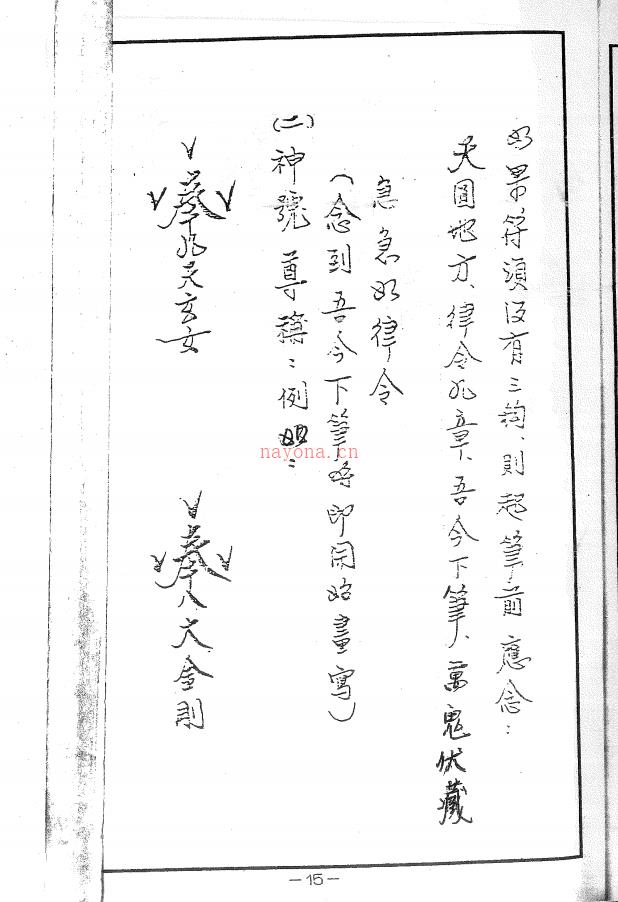 如果符頭沒有三鈎、則起筆前應念：
天圓地方、律令九章、吾今下筆、萬鬼伏藏
急急如律令
（念到吾今下筆時即開始畫寫）
(二)神號尊稱：例如：
奉九天玄女
奉八大金剛
nayona.cn
－15－